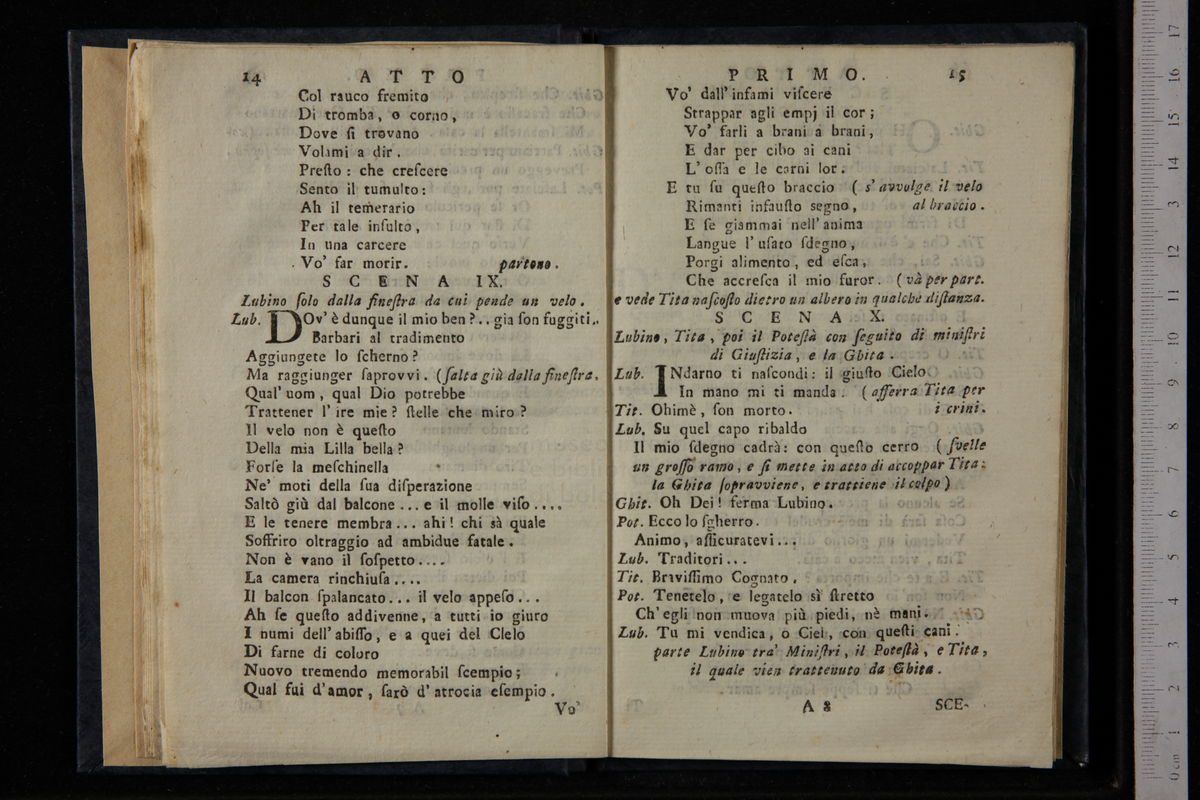 14 ATTO
Col rauco fremito
Di tromba, o corno,
Dove ſi trovano
Volami a dir.
Preſto: che creſcere
Sento il tumulto:
Ah il temerario
Per tale inſulto,
In una carcere
Vo' far morir. partono.
SCENA IX.
Lubino ſolo dalla fineſtra da cui pende un velo.
Lub. DOv' è dunque il mio ben?.. gia ſon fuggiti..
Barbari al tradimento
Aggiungete lo ſcherno?
Ma raggiunger ſaprovvi. (ſalta giù dalla fineſtra.
Qual' uom, qual Dio potrebbe
Trattener l' ire mie? ſtelle che miro?
Il velo non è queſto
Della mia Lilla bella?
Forſe la meſchinella
Ne' moti della ſua diſperazione
Saltò giù dal balcone ... e il molle viſo ....
E le tenere membra... ahi! chi sà quale
Soffriro oltraggio ad ambidue fatale.
Non è vano il ſoſpetto ....
La camera rinchiuſa ....
Il balcon ſpalancato... il velo appeſo ...
Ah ſe queſto addivenne, a tutti io giuro
I numi dell' abiſſo, e a quei del CIelo
Di farne di coloro
Nuovo tremendo memorabil ſcempio;
Qual fui d'amor, ſarò d' atrocia eſempio.
Vo'
PRIMO. 15
Vo' dall' infami viſcere
Strappar agli empj il cor;
Vo' farli a brani a brani,
E dar per cibo ai cani
L' oſſa e le carni lor.
E tu ſu queſto braccio (s' avvolge il velo
Rimanti infauſto ſegno, al braccio.
E ſe giammai nell' anima
Langue l' uſato ſdegno,
Porgi alimento, ed eſca,
Che accreſca il mio furor. (và per part.
e vede Tita naſcoſto dietro un albero in qualche diſtanza.
SCENA X.
Lubino, Tita, poi il Poteſtà con ſeguito di miniſtri
di Giuſtizia, e la Ghita.
Lub. INdarno ti naſcondi: il giuſto Cielo
In mano mi ti manda. (afferra Tita per
Tit. Ohimè, ſon morto. i crini.
Lub. Su quel capo ribaldo
Il mio ſdegno cadrà: con queſto cerro (ſvelle
un groſſo ramo, e ſi mette in atto di accoppar Tita:
la Ghita ſopravviene, e trattiene il colpo)
Ghit. Oh Dei! ferma Lubino.
Pot. Ecco lo ſgherro.
Animo, aſſicuratevi...
Lub. Traditori...
Tit. Braviſſimo Cognato.
Pot. Tenetelo, e legatelo sì ſtretto
Ch' egli non muova più piedi, nè mani.
Lub. Tu mi vendica, o Ciel, con queſti cani.
parte Lubino tra' Miniſtri, il Poteſtà, e Tita,
il quale vien trattenuto da Ghita.
A 8 SCE-
0 cm 1 2 3 4 5 6 7 8 9 10 11 12 13 14 15 16 17